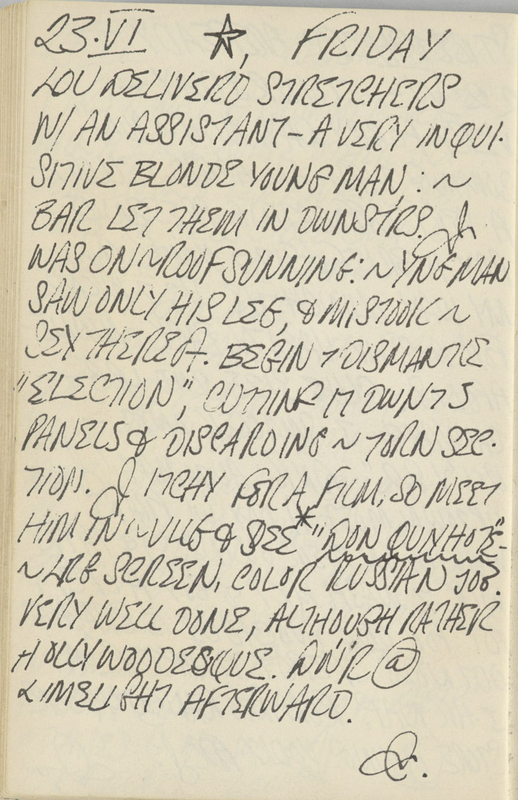 23·VI ☆, FRIDAY
LOU DELIVERD STRETCHERS
W/ AN ASSISTANT – A VERY INQUI-
SITIVE BLONDE YOUNG MAN : ~
BAR LET THEM IN DWNSTRS. J.
WAS ON ~ ROOF SUNNING: ~ YNG MAN
SAW ONLY HIS LEG, & MISTOOK ~
SEX THEREOF. BEGIN 7 DISMANTLE
"ELECTION", CUTTING IT DWN 7 5
PANELS & DISCARDING ~ TORN SEC-
TION. J ITCHY FOR A FILM, SO MEET
HIM IN ~ VLLG & SEE * "DON QUIXOTE" –
~ LRG SCREEN, COLOR RUSSIAN JOB.
VERY WELL DONE, ALTHOUGH RATHER
HOLLYWOODESQUE. DN'R @
LIMELIGHT AFTERWARD.